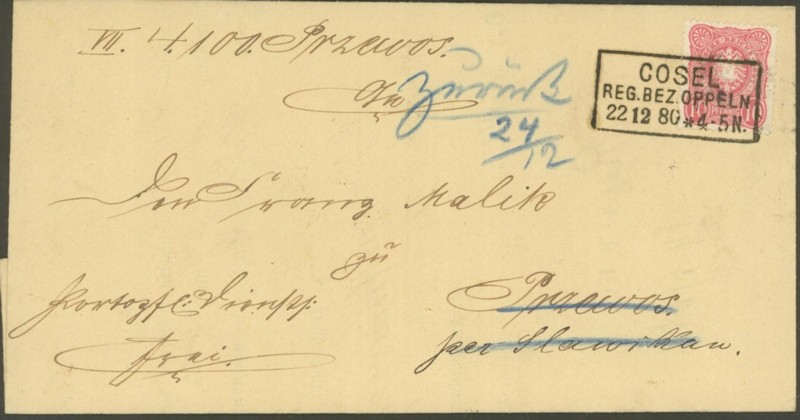 VII. 4.100. Przewos.
An
Zurück
24/12
COSEL
REG.BEZ.OPPELN
22 12 80 * 4-5N.
PFENNIG
Den Franz Malik
zu
Portopfl: Dienst:
frei.
Przewos.
per Slawikau.